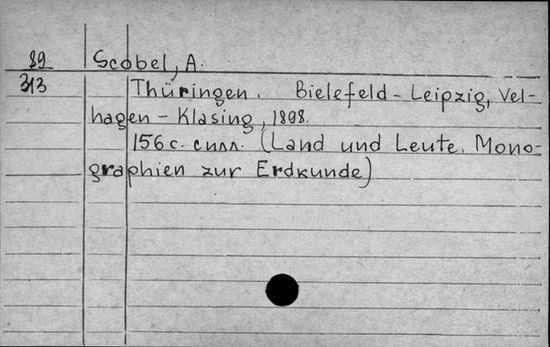 89 Scobel, A.
313 Thüringen. Bielefeld - Leipzig, Vel-
hagen - Klasing, 1898.
156 с. с илл. (Land und Leute. Mono-
graphien zur Erdkunde)